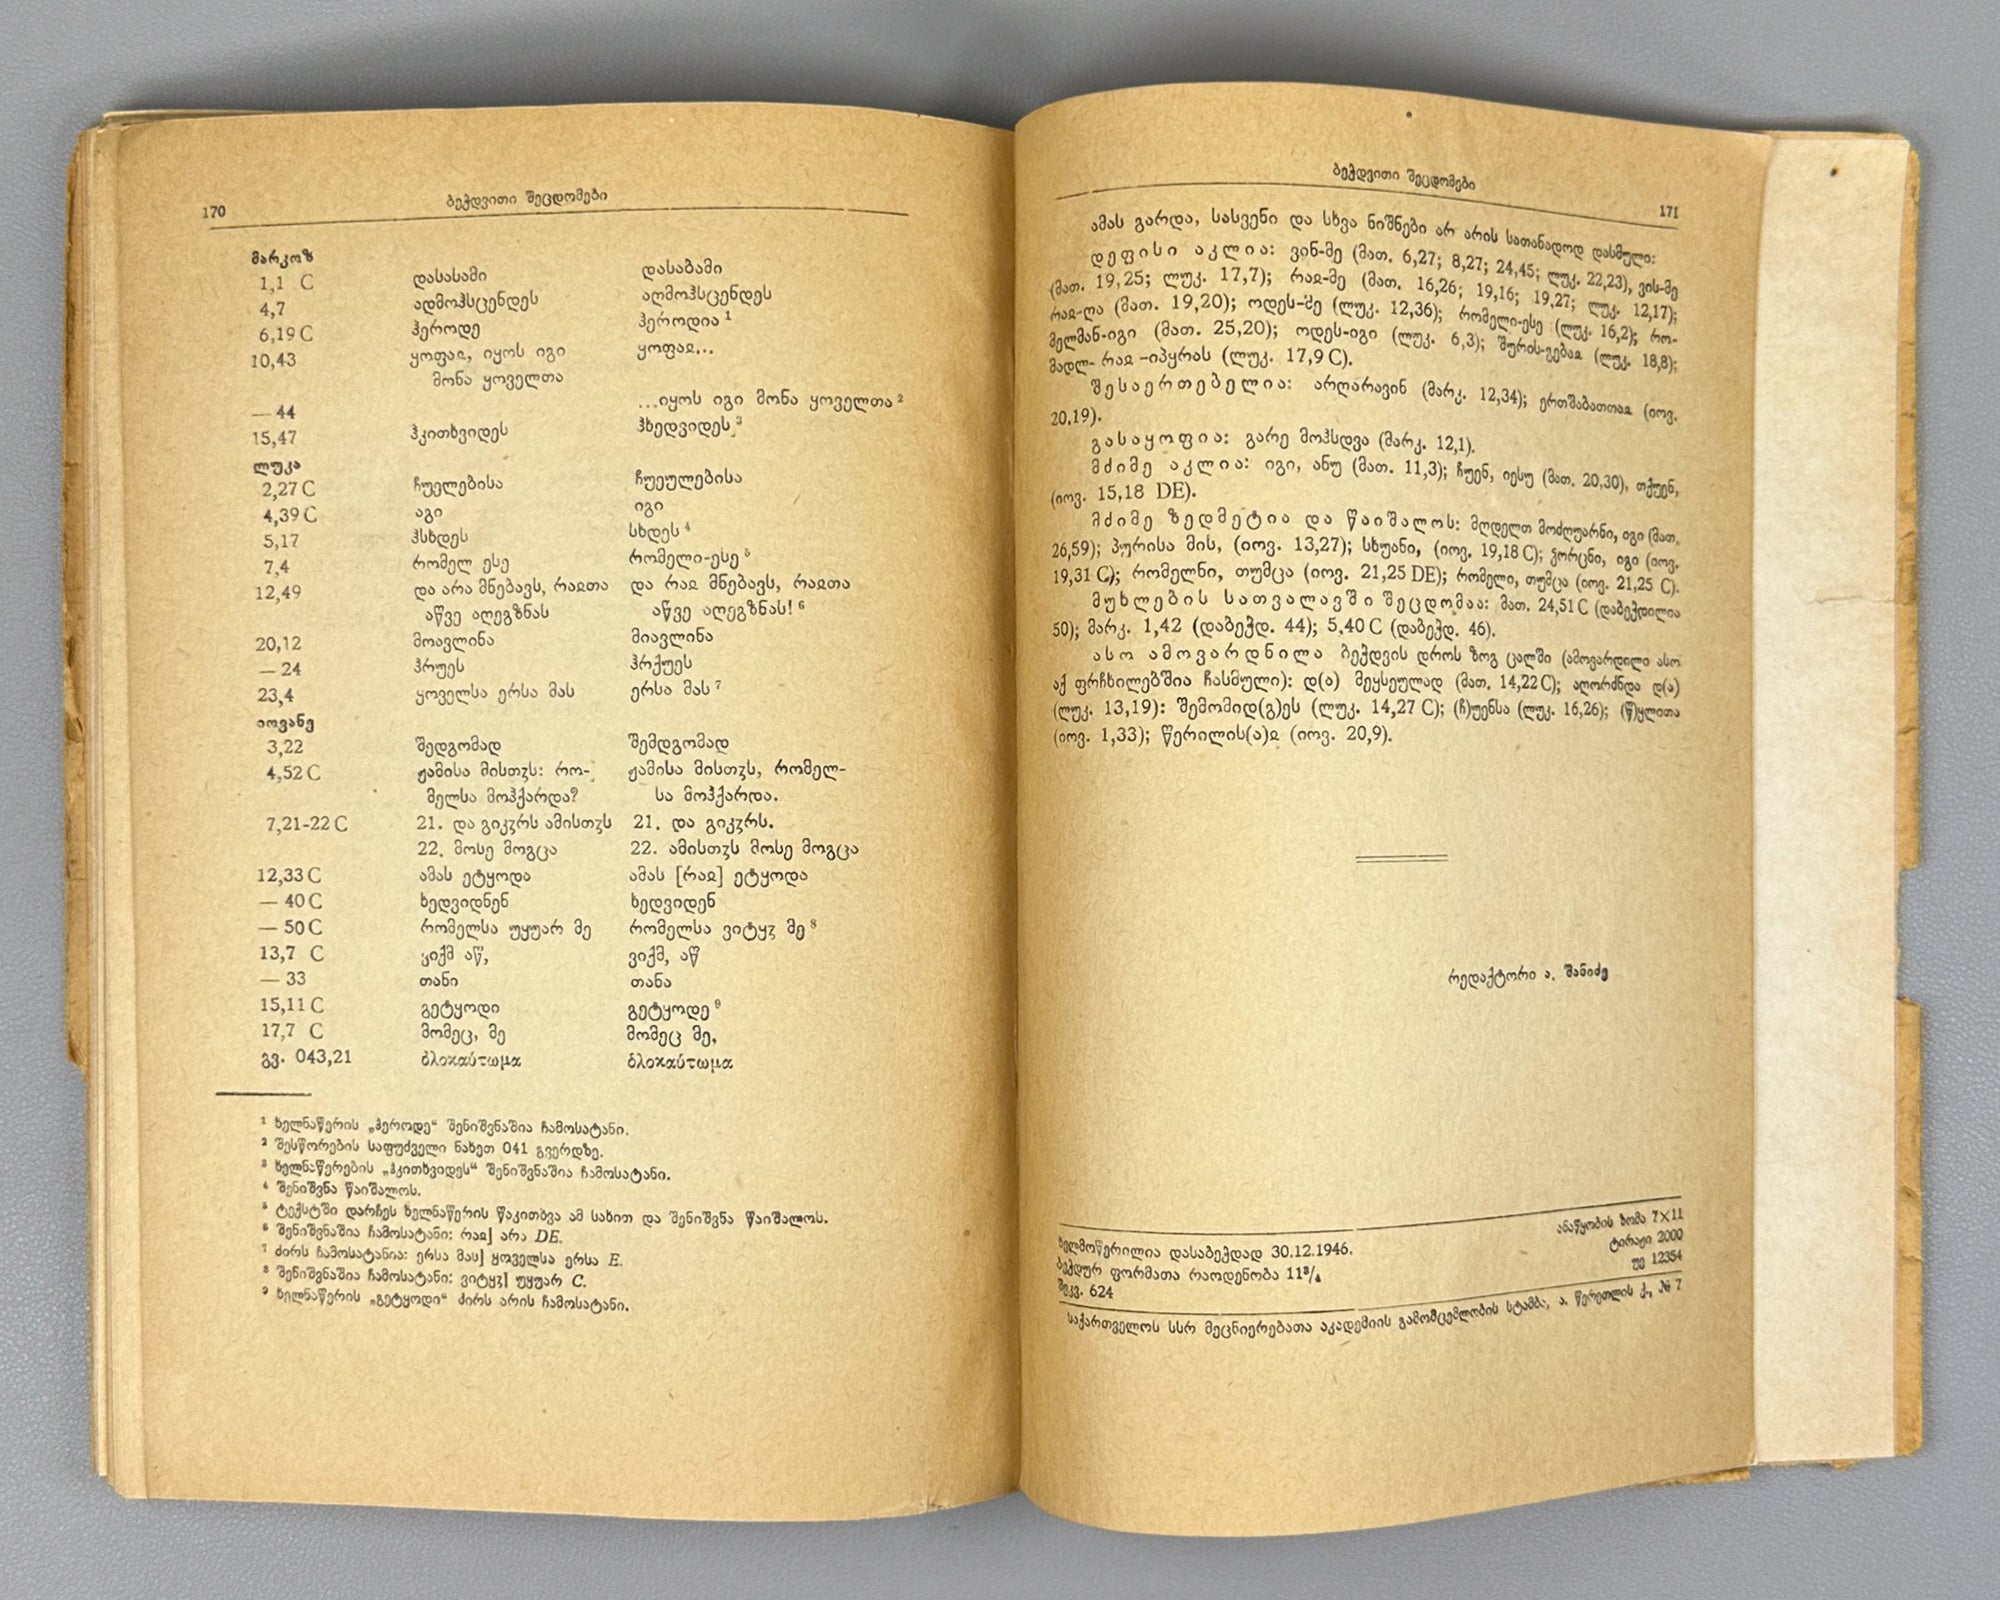 170
ბეჭდვითი შეცდომები
მარკოზ
1,1 C დასასამი დასაბამი
4,7 ადმოჰსცენდეს აღმოჰსცენდეს
6,19 C ჰეროდე ჰეროდია 1
10,43 ყოფაჲ, იყოს იგი ყოფაჲ...
მონა ყოველთა
— 44 ...იყოს იგი მონა ყოველთა 2
15,47 ჰკითხვიდეს ჰხედვიდეს 3
ლუკა
2,27 C ჩუელებისა ჩუეულებისა
4,39 C აგი იგი
5,17 ჰსხდეს სხდეს 4
7,4 რომელ ესე რომელი-ესე 5
12,49 და არა მნებავს, რაჲთა და რაჲ მნებავს, რაჲთა
აწვე აღეგზნას აწვე აღეგზნას! 6
20,12 მოავლინა მიავლინა
— 24 ჰრუეს ჰრქუეს
23,4 ყოველსა ერსა მას ერსა მას 7
იოვანე
3,22 შედგომად შემდგომად
4,52 C ჟამისა მისთჳს: რო- ჟამისა მისთჳს, რომელ-
მელსა მოჰქარდა? სა მოჰქარდა.
7,21-22 C 21. და გიკჳრს ამისთჳს 21. და გიკჳრს.
22. მოსე მოგცა 22. ამისთჳს მოსე მოგცა
12,33 C ამას ეტყოდა ამას [რაჲ] ეტყოდა
— 40 C ხედვიდნენ ხედვიდენ
— 50 C რომელსა უყუარ მე რომელსა ვიტყჳ მე 8
13,7 C ყიქმ აწ, ვიქმ, აწ
— 33 თანი თანა
15,11 C გეტყოდი გეტყოდე 9
17,7 C მომეც, მე მომეც მე,
გვ. 043,21
1 ხელნაწერის „ჰეროდე“ შენიშვნაშია ჩამოსატანი.
2 შესწორების საფუძველი ნახეთ 041 გვერდზე.
3 ხელნაწერების „ჰკითხვიდეს“ შენიშვნაშია ჩამოსატანი.
4 შენიშვნა წაიშალოს.
5 ტექსტში დარჩეს ხელნაწერის წაკითხვა ამ სახით და შენიშვნა წაიშალოს.
6 შენიშვნაშია ჩამოსატანი: რაჲ] არა DE.
7 ძირს ჩამოსატანია: ერსა მას] ყოველსა ერსა E.
8 შენიშვნაშია ჩამოსატანი: ვიტყჳ] უყუარ C.
9 ხელნაწერის „გეტყოდი“ ძირს არის ჩამოსატანი.
ბეჭდვითი შეცდომები
171
ამას გარდა, სასვენი და სხვა ნიშნები არ არის სათანადოდ დასმული:
დეფისი აკლია: ვინ-მე (მათ. 6,27; 8,27; 24,45; ლუკ. 22,23), ვის-მე
(მათ. 19,25; ლუკ. 17,7); რაჲ-მე (მათ. 16,26; 19,16; 19,27; ლუკ. 12,17);
რაჲ-ღა (მათ. 19,20); ოდეს-მე (ლუკ. 12,36); რომელი-ესე (ლუკ. 16,2); რო-
მელმან-იგი (მათ. 25,20); ოდეს-იგი (ლუკ. 6,3); შურის-გებაჲ (ლუკ. 18,8);
მადლ- რაჲ -იპყრას (ლუკ. 17,9 C).
შესაერთებელია: არღარავინ (მარკ. 12,34); ერთშაბათთაჲ (იოვ.
20.19).
გასაყოფია: გარე მოჰსდვა (მარკ. 12,1).
მძიმე აკლია: იგი, ანუ (მათ. 11,3); ჩუენ, იესუ (მათ. 20,30), თქუენ,
(იოვ. 15,18 DE).
მძიმე ზედმეტია და წაიშალოს: მღდელთ მოძღუარნი, იგი (მათ.
26,59); პურისა მის, (იოვ. 13,27); სხუანი, (იოვ. 19,18 C); ჴორცნი, იგი (იოვ.
19,31 C); რომელნი, თუმცა (იოვ. 21,25 DE); რომელი, თუმცა (იოვ. 21,25 C).
მუხლების სათვალავში შეცდომაა: მათ. 24,51 C (დაბეჭდილია
50); მარკ. 1,42 (დაბეჭდ. 44); 5.40 C (დაბეჭდ. 46).
ასო ამოვარდნილა ბეჭდვის დროს ზოგ ცალში (ამოვარდილი ასო
აქ ფრჩხილებშია ჩასმული): დ(ა) მეყსეულად (მათ. 14,22 C); აღორძნდა დ(ა)
(ლუკ. 13,19): შემომიდ(გ)ეს (ლუკ. 14,27 C); (ჩ)უენსა (ლუკ. 16,26); (წ)ყლითა
(იოვ. 1,33); წერილის(ა)ჲ (იოვ. 20,9).
რედაქტორი ა. შანიძე
ხელმოწერილია დასაბეჭდად 30.12.1946.
ანაწყობის ზომა 7×11
ბეჭდურ ფორმათა რაოდენობა 11 3/4
ტირაჟი 2000
შეკვ. 624
უე 12354
საქართველოს სსრ მეცნიერებათა აკადემიის გამომცემლობის სტამბა, ა. წერეთლის ქ., № 7